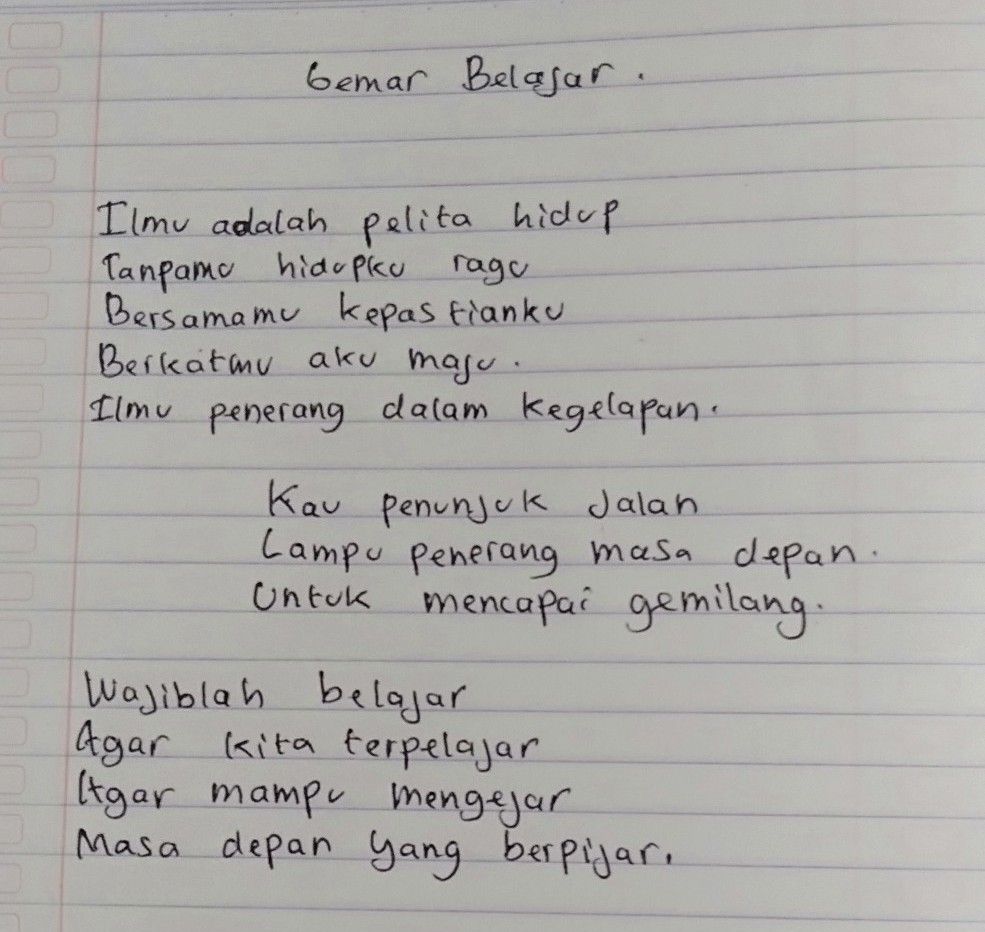 Gemar Belajar.
Ilmu adalah pelita hidup
Tanpamu hidupku ragu
Bersamamu kepastianku
Berkatmu aku maju.
Ilmu penerang dalam kegelapan.
Kau penunjuk Jalan
Lampu penerang masa depan.
Untuk mencapai gemilang.
Wajiblah belajar
Agar kita terpelajar
Agar mampu mengejar
Masa depan yang berpijar.